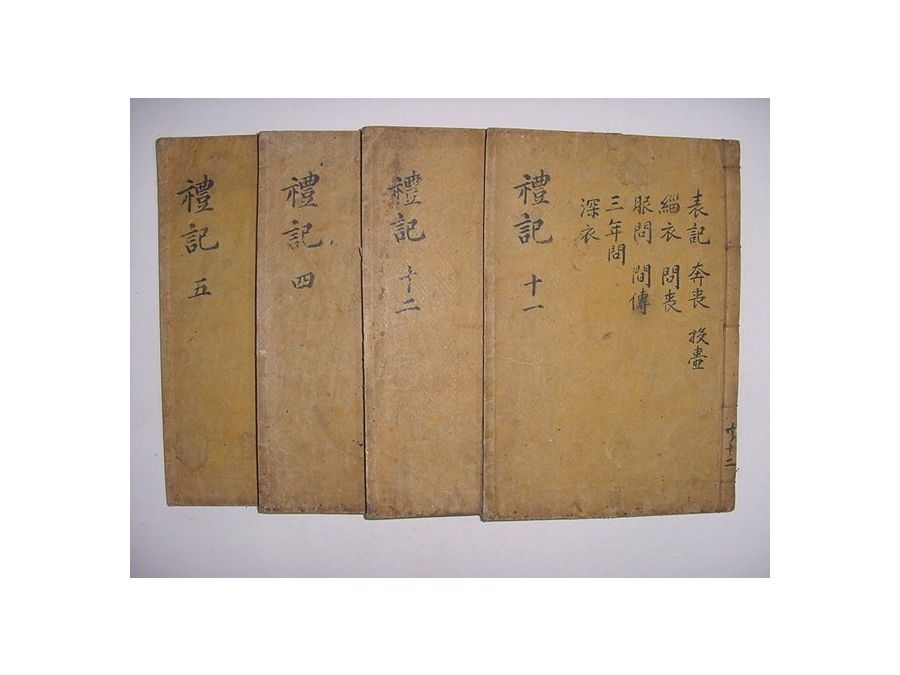 表記 奔喪 投壺
緇衣 問喪
服問 間傳
三年問
深衣
禮記 十一
共十二
禮記 十二
禮記 四
禮記 五